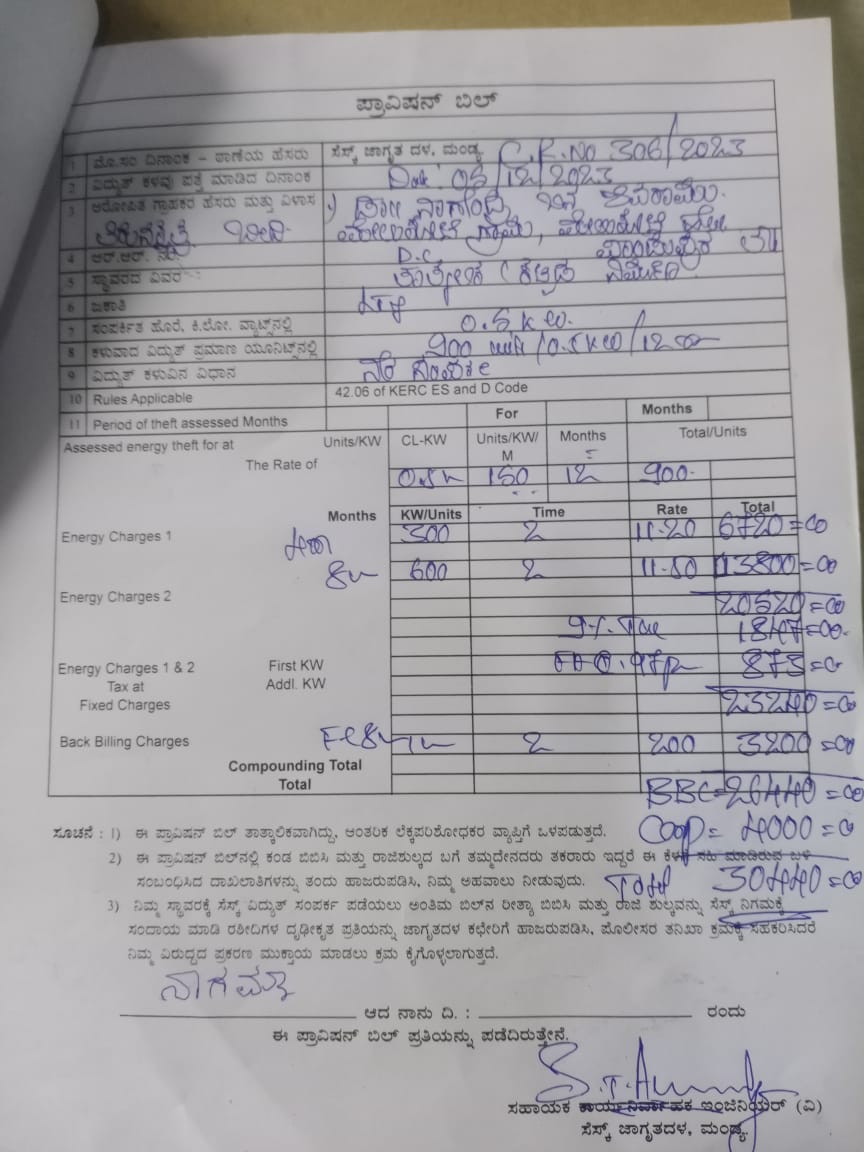 ಪ್ರಾವಿಷನ್ ಬಿಲ್
1 ಮೊ.ಸಂ ದಿನಾಂಕ - ಠಾಣೆಯ ಹೆಸರು ಸೆಸ್ಕ್ ಜಾಗೃತ ದಳ, ಮಂಡ್ಯ C.R.No 306/2023
2 ವಿದ್ಯುತ್ ಕಳವು ಪತ್ತೆ ಮಾಡಿದ ದಿನಾಂಕ Date: 05/12/2023
3 ಆರೋಪಿತ ಗ್ರಾಹಕರ ಹೆಸರು ಮತ್ತು ವಿಳಾಸ
ಗ್ರಾಮ,
4 ಆರ್.ಆರ್. ನಂ D.C
5 ಸ್ಥಾವರದ ವಿವರ
6 ಜಕಾತಿ
7 ಸಂಪರ್ಕಿತ ಹೊರೆ, ಕಿ.ಲೋ. ವ್ಯಾಟ್ಸ್‌ನಲ್ಲಿ 0.5 KW.
8 ಕಳುವಾದ ವಿದ್ಯುತ್ ಪ್ರಮಾಣ ಯೂನಿಟ್ಸ್‌ನಲ್ಲಿ 900 unit/0.5KW/12
9 ವಿದ್ಯುತ್ ಕಳುವಿನ ವಿಧಾನ
10 Rules Applicable 42.06 of KERC ES and D Code
11 Period of theft assessed Months For Months
Assessed energy theft for at Units/KW CL-KW Units/KW/M Months Total/Units
The Rate of 0.5 150 12 900
Months KW/Units Time Rate Total
Energy Charges 1 300 2 11-20 6720=00
600 2 11-50 13800=00
Energy Charges 2 20520=00
9% Tax 1847=00
Energy Charges 1 & 2 First KW 873=00
Tax at Addl. KW
Fixed Charges 23240=00
Back Billing Charges 2 200 3200=00
Compounding Total
Total BBC=26440=00
ಸೂಚನೆ : 1) ಈ ಪ್ರಾವಿಷನ್ ಬಿಲ್ ತಾತ್ಕಾಲಿಕವಾಗಿದ್ದು, ಆಂತರಿಕ ಲೆಕ್ಕಪರಿಶೋಧಕರ ವ್ಯಾಪ್ತಿಗೆ ಒಳಪಡುತ್ತದೆ. Comp= 4000=00
2) ಈ ಪ್ರಾವಿಷನ್ ಬಿಲ್‌ನಲ್ಲಿ ಕಂಡ ಬಿಬಿಸಿ ಮತ್ತು ರಾಜಿಶುಲ್ಕದ ಬಗೆ ತಮ್ಮದೇನದರು ತಕರಾರು ಇದ್ದರೆ ಈ ಕೆಳಗೆ ಸಹಿ ಮಾಡಿರುವ ಬಳಿ
ಸಂಬಂಧಿಸಿದ ದಾಖಲಾತಿಗಳನ್ನು ತಂದು ಹಾಜರುಪಡಿಸಿ, ನಿಮ್ಮ ಅಹವಾಲು ನೀಡುವುದು. Total 30440=00
3) ನಿಮ್ಮ ಸ್ಥಾವರಕ್ಕೆ ಸೆಸ್ಕ್ ವಿದ್ಯುತ್ ಸಂಪರ್ಕ ಪಡೆಯಲು ಅಂತಿಮ ಬಿಲ್‌ನ ರೀತ್ಯಾ ಬಿಬಿಸಿ ಮತ್ತು ರಾಜಿ ಶುಲ್ಕವನ್ನು ಸೆಸ್ಕ್ ನಿಗಮಕ್ಕೆ
ಸಂದಾಯ ಮಾಡಿ ರಶೀದಿಗಳ ದೃಢೀಕೃತ ಪ್ರತಿಯನ್ನು ಜಾಗೃತದಳ ಕಛೇರಿಗೆ ಹಾಜರುಪಡಿಸಿ, ಪೊಲೀಸರ ತನಿಖಾ ಕ್ರಮಕ್ಕೆ ಸಹಕರಿಸಿದರೆ
ನಿಮ್ಮ ವಿರುದ್ಧದ ಪ್ರಕರಣ ಮುಕ್ತಾಯ ಮಾಡಲು ಕ್ರಮ ಕೈಗೊಳ್ಳಲಾಗುತ್ತದೆ.
ನಾಗಮ್ಮ
ಆದ ನಾನು ದಿ. : ರಂದು
ಈ ಪ್ರಾವಿಷನ್ ಬಿಲ್ ಪ್ರತಿಯನ್ನು ಪಡೆದಿರುತ್ತೇನೆ.
ಸಹಾಯಕ ಕಾರ್ಯನಿರ್ವಾಹಕ ಇಂಜಿನಿಯರ್ (ವಿ)
ಸೆಸ್ಕ್ ಜಾಗೃತದಳ, ಮಂಡ್ಯ.